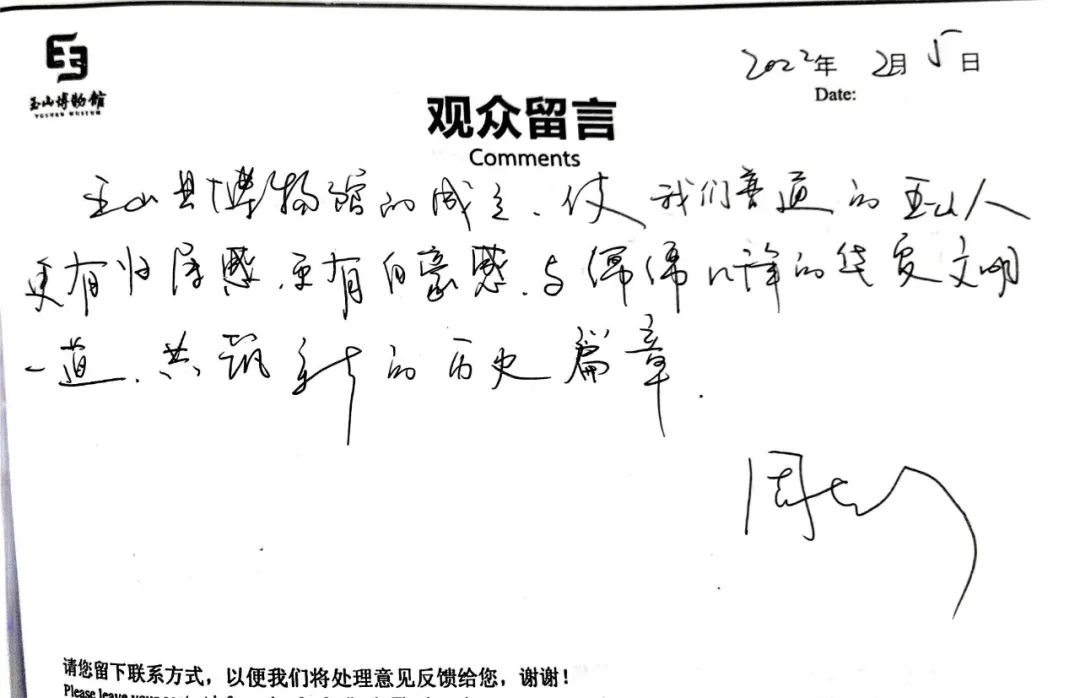 玉山博物館
YUSHAN MUSEUM
2022年 2月5日
Date:
观众留言
Comments
玉山县博物馆的成立、使我们普通的玉山人
更有归属感.更有自豪感.与绵绵的华夏文明
一道.共筑新的历史篇章.
周
请您留下联系方式，以便我们将处理意见反馈给您，谢谢！
Please leave your